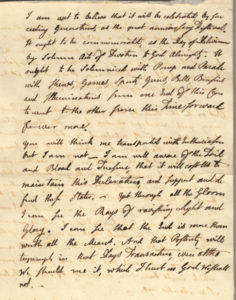 I am apt to believe that it will be celebrated, by suc-
ceeding Generations, as the great anniversary Festival.
It ought to be commemorated, as the Day of Deliverance
by Solemn Acts of Devotion to God Almighty. It
ought to be solemnized with Pomp and Parade
with Shews, Games, Sports, Guns, Bells, Bonfires
and Illuminations from one End of this Con-
tinent to the other from this Time forward
forever more.
You will think me transported with Enthusiasm
but I am not. I am well aware of the Toil
and Blood and Treasure, that it will cost Us to
maintain this Declaration, and support and de-
fend these States. Yet through all the Gloom
I can see the Rays of ravishing Light and
Glory. I can see that the End is more than
worth all the Means. And that Posterity will
tryumph in that Days Transaction, even altho
We should rue it, which I trust in God We shall
not.